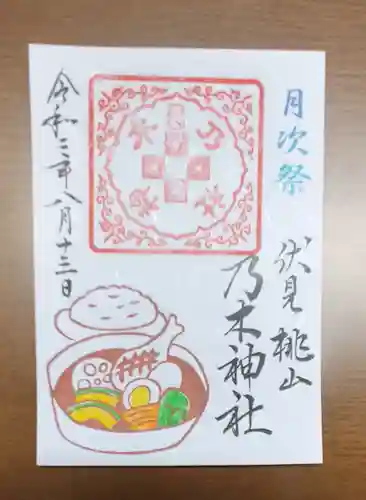 月次祭
伏見桃山
乃木神社
令和三年八月十三日